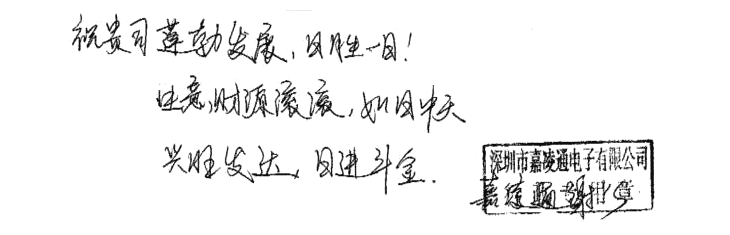 祝贵司蓬勃发展,日胜一日!
生意,财源滚滚,如日中天
兴旺发达,日进斗金.
深圳市嘉凌通电子有限公司
嘉凌通 章